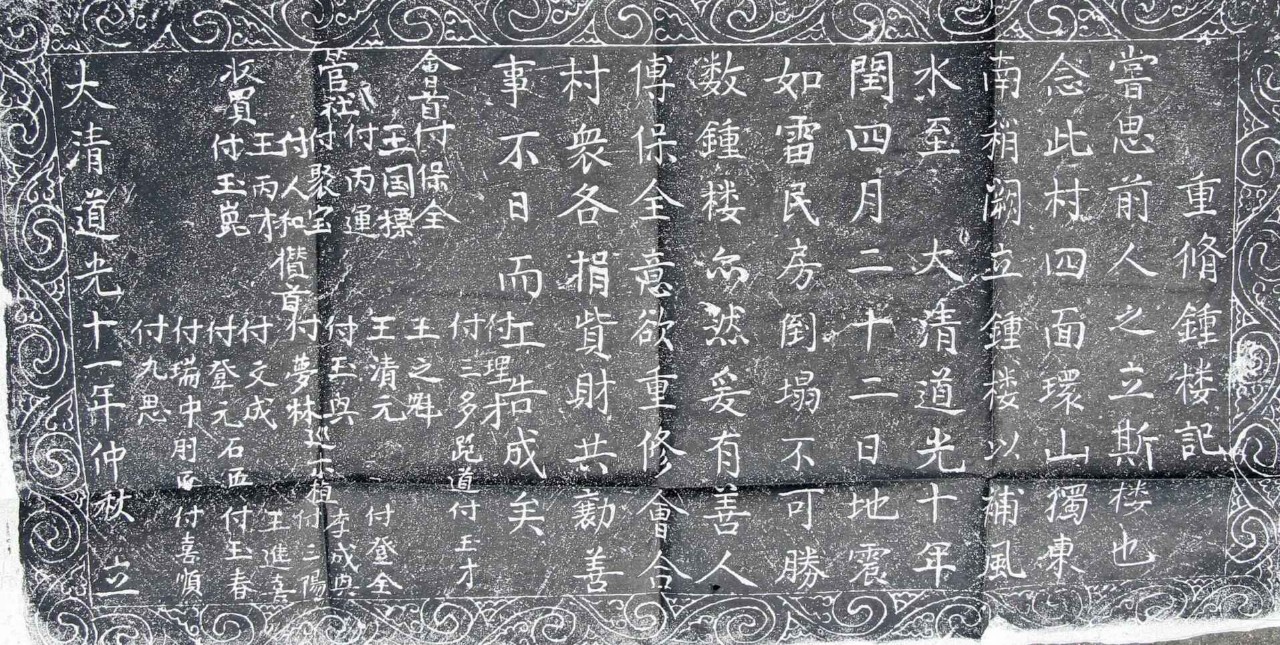 重脩鍾楼記
嘗思前人之立斯楼也
念此村四面環山獨東
南稍闕立鍾楼以補風
水至 大清道光十年
閏四月二十二日地震
如雷民房倒塌不可勝
数鍾楼亦然爰有善人
傅保全意欲重修會合
村衆各捐貲財共勷善
事不日而工告成矣
會首 付保全
王国標
管社 付丙運
付聚宝
付人和
王丙才
收買 付玉崑
付理才
付三多
王之魁
王清元
付玉興
儹首 付夢林
付文成
付登元
付瑞中
付九思
跑道 付玉才
付登全
李成興
付三陽
王進喜
石匠 付玉春
付喜順
大清道光十一年仲秋 立